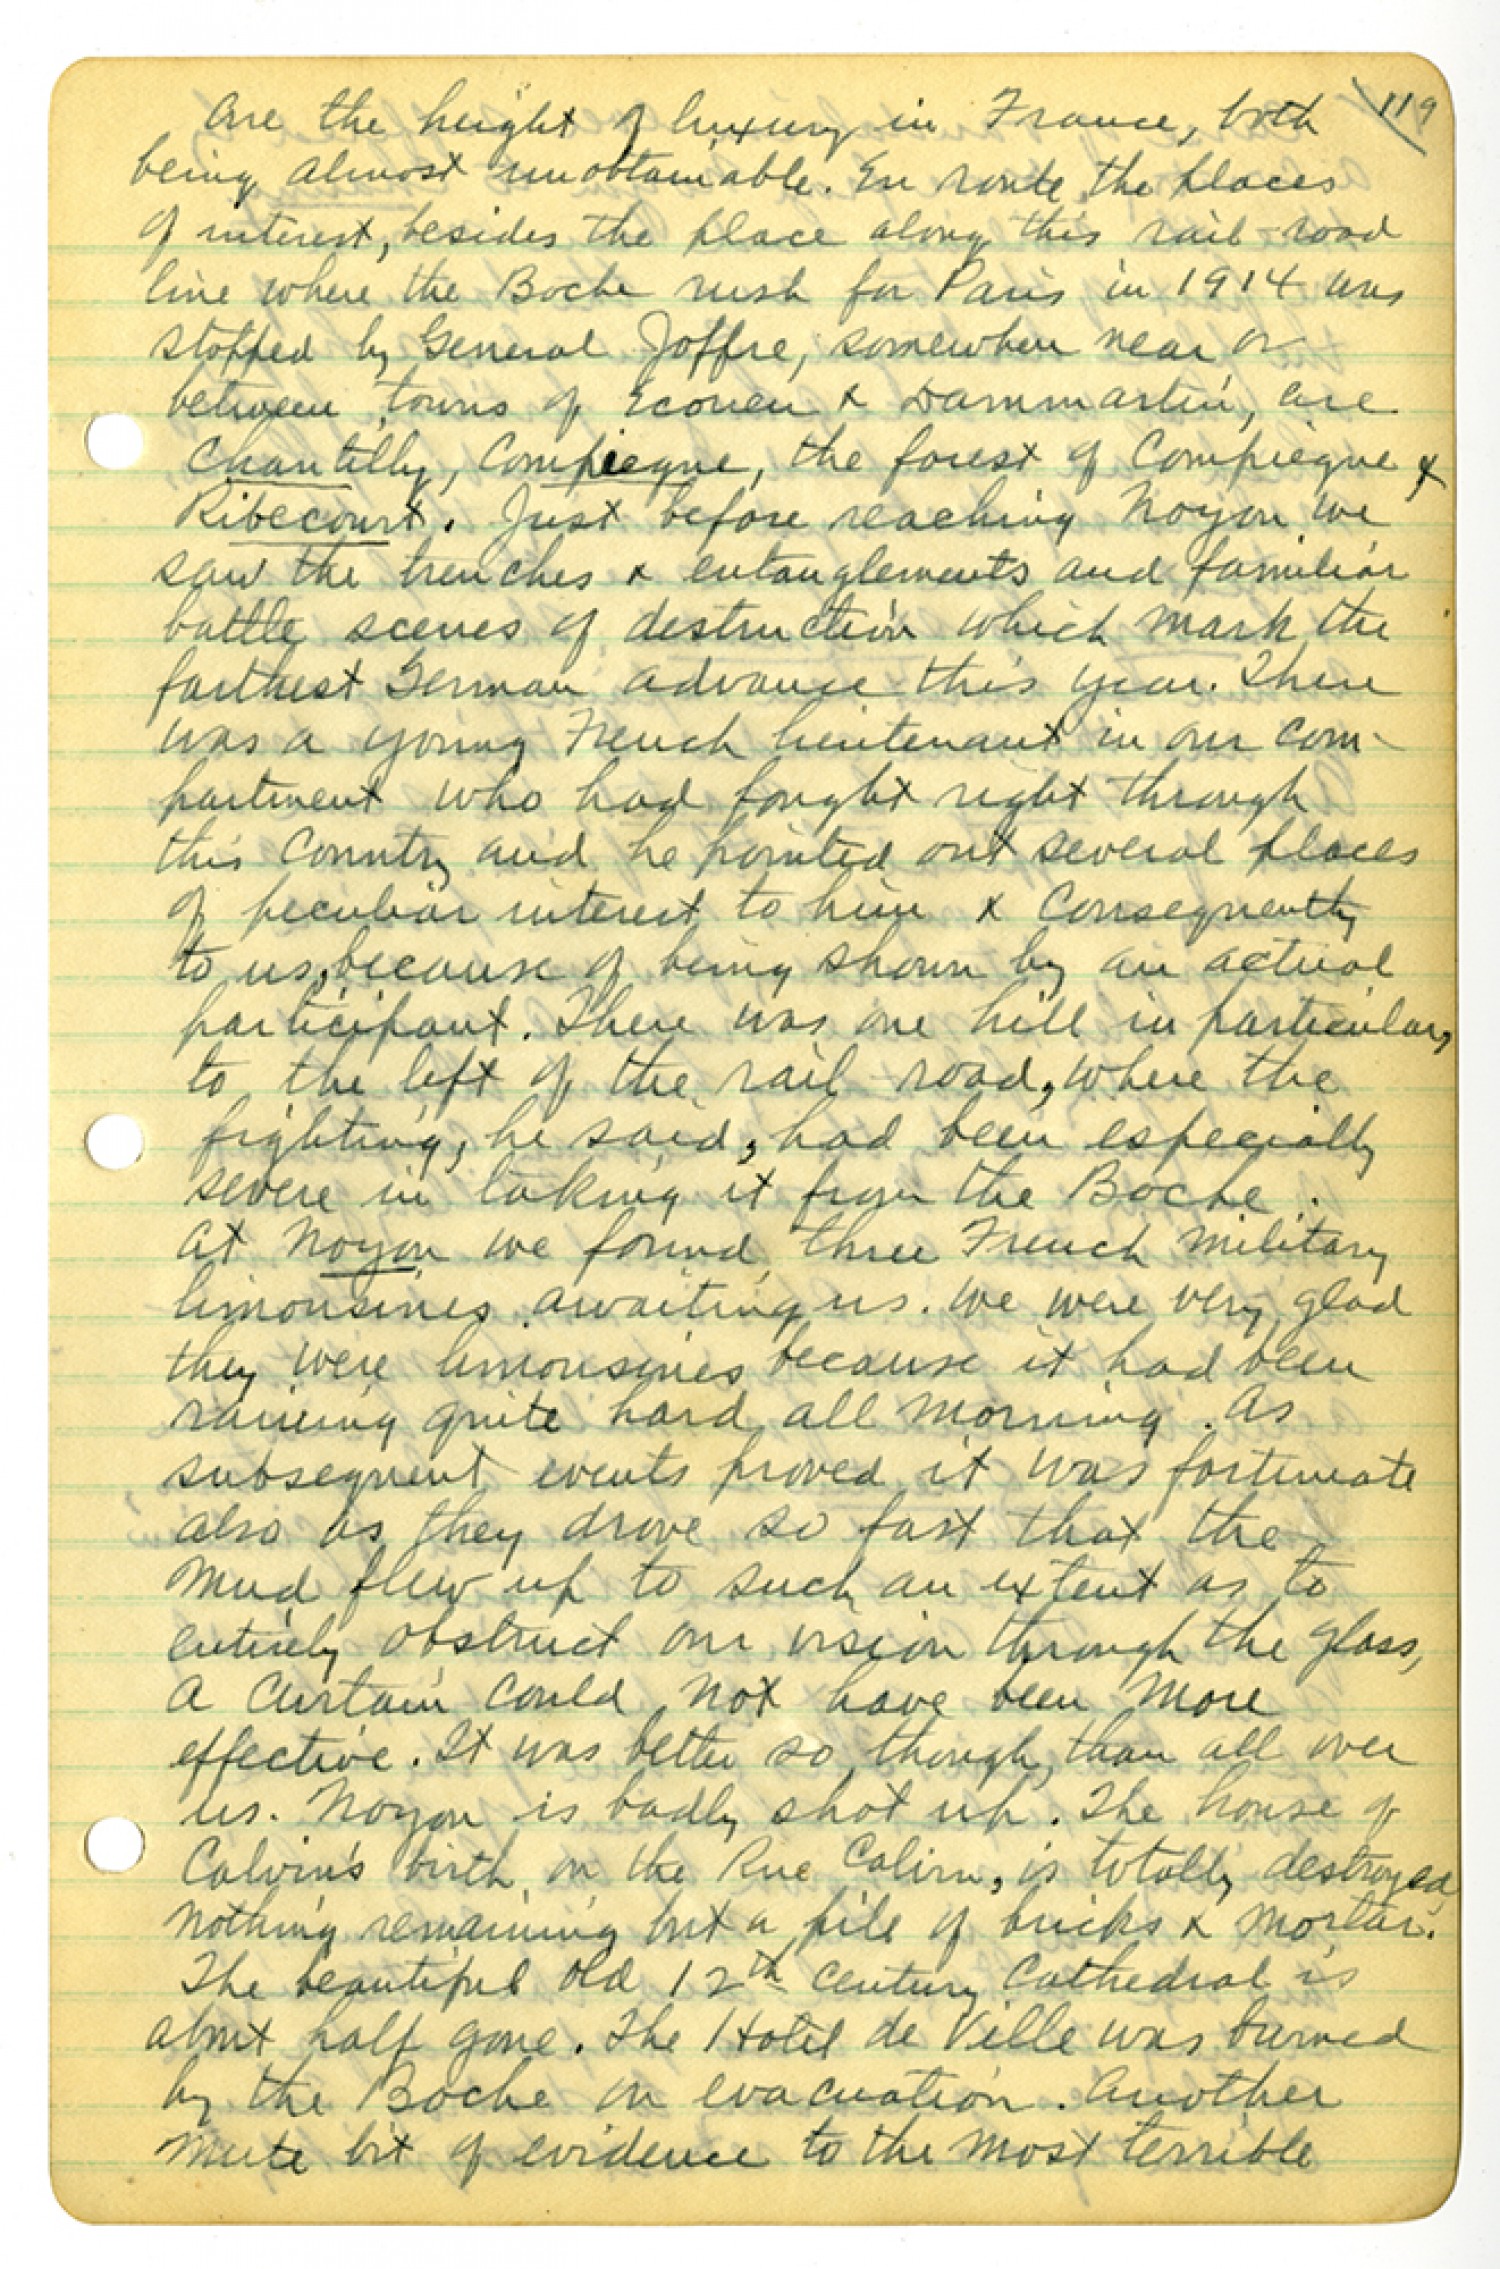 119
are the height of luxury in France, both
being almost unobtainable. En route the places
of interest, besides the place along this rail-road
line where the Boche rush for Paris in 1914 was
stopped by General Joffre, somewhere near or
between towns of Ecouen & Dammartin, are
Chantilly, Compiegne, the forest of Compiegne &
Ribecourt. Just before reaching Noyon we
saw the trenches & entanglements and familiar
battle scenes of destruction which mark the
farthest German advance this year. There
was a young French lieutenant in our com-
partment who had fought right through
this Country and he pointed out several places
of peculiar interest to him & Consequently
to us, because of being shown by an actual
participant. There was one hill in particular,
to the left of the rail-road, where the
fighting, he said, had been especially
severe in taking it from the Boche.
At Noyon we found three French military
limousines awaiting us. We were very glad
they were limousines because it had been
raining quite hard all morning. As
subsequent events proved it was fortunate
also as they drove so fast that the
mud flew up to such an extent as to
entirely obstruct our vision through the glass,
a curtain could not have been more
effective. It was better so, though, than all over
us. Noyon is badly shot up. The house of
Calvin's birth, on the Rue Calvin, is totally destroyed,
nothing remaining but a pile of bricks & mortar.
The beautiful old 12th Century Cathedral is
about half gone. The Hotel de Ville was burned
by the Boche on evacuation. Another
mute bit of evidence to the most terrible